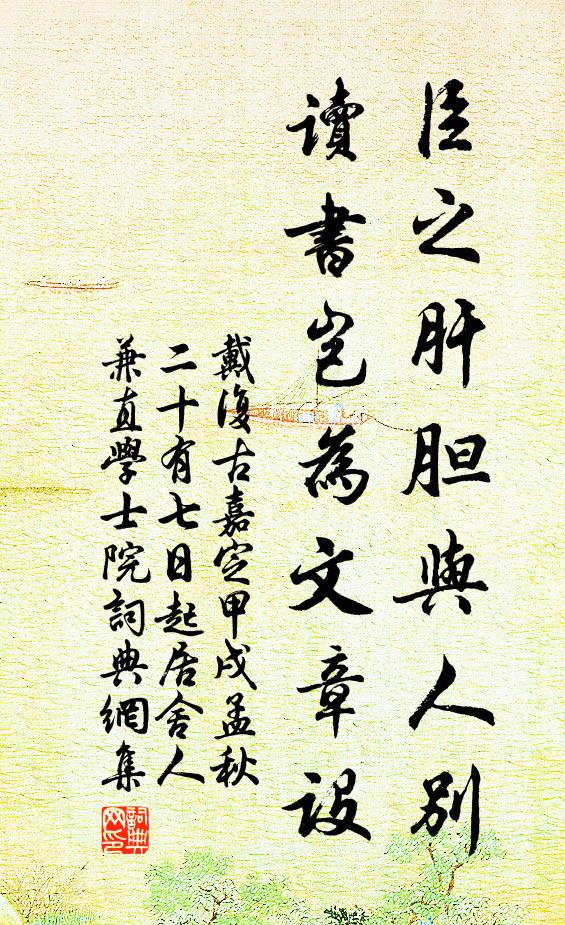 臣之肝胆與人別
讀書豈為文章設
戴復古嘉定甲戌孟秋
二十有七日起居舍人
兼直學士院詞典網集
詞典
网印